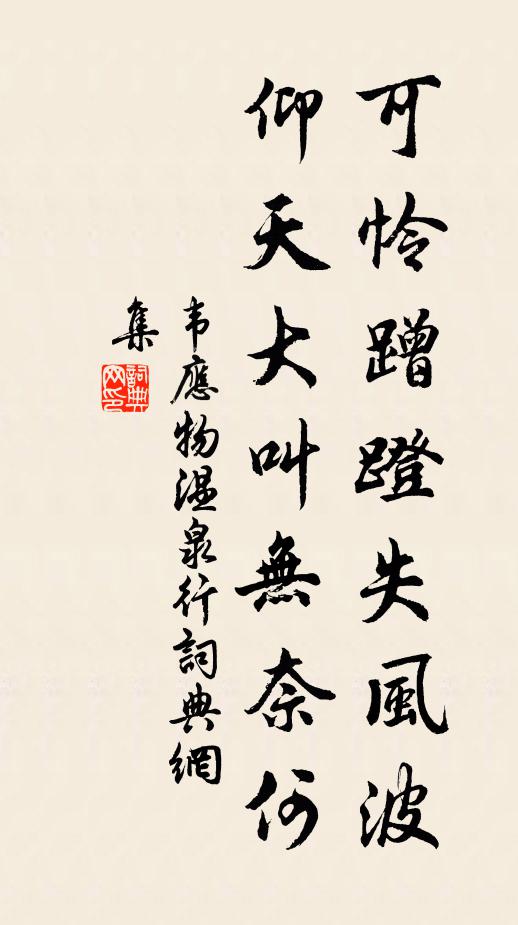 可怜蹭蹬失風波
仰天大叫無奈何
韦應物温泉行詞典網
集
詞典
网印